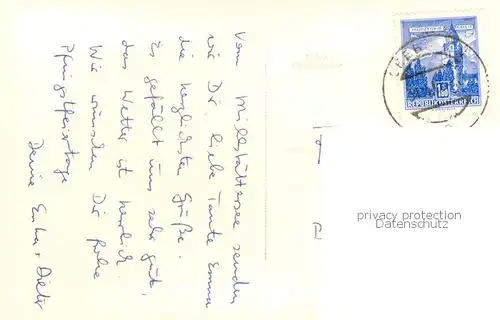 Vom Millstättersee senden
wir Dir, liebe Tante Emma
die herzlichsten Grüße.
Es gefällt uns sehr gut,
das Wetter ist herrlich.
Wir wünschen Dir frohe
Pfingstfeiertage
Deine Erika + Dieter
REPUBLIK ÖSTERREICH
privacy protection
Datenschutz